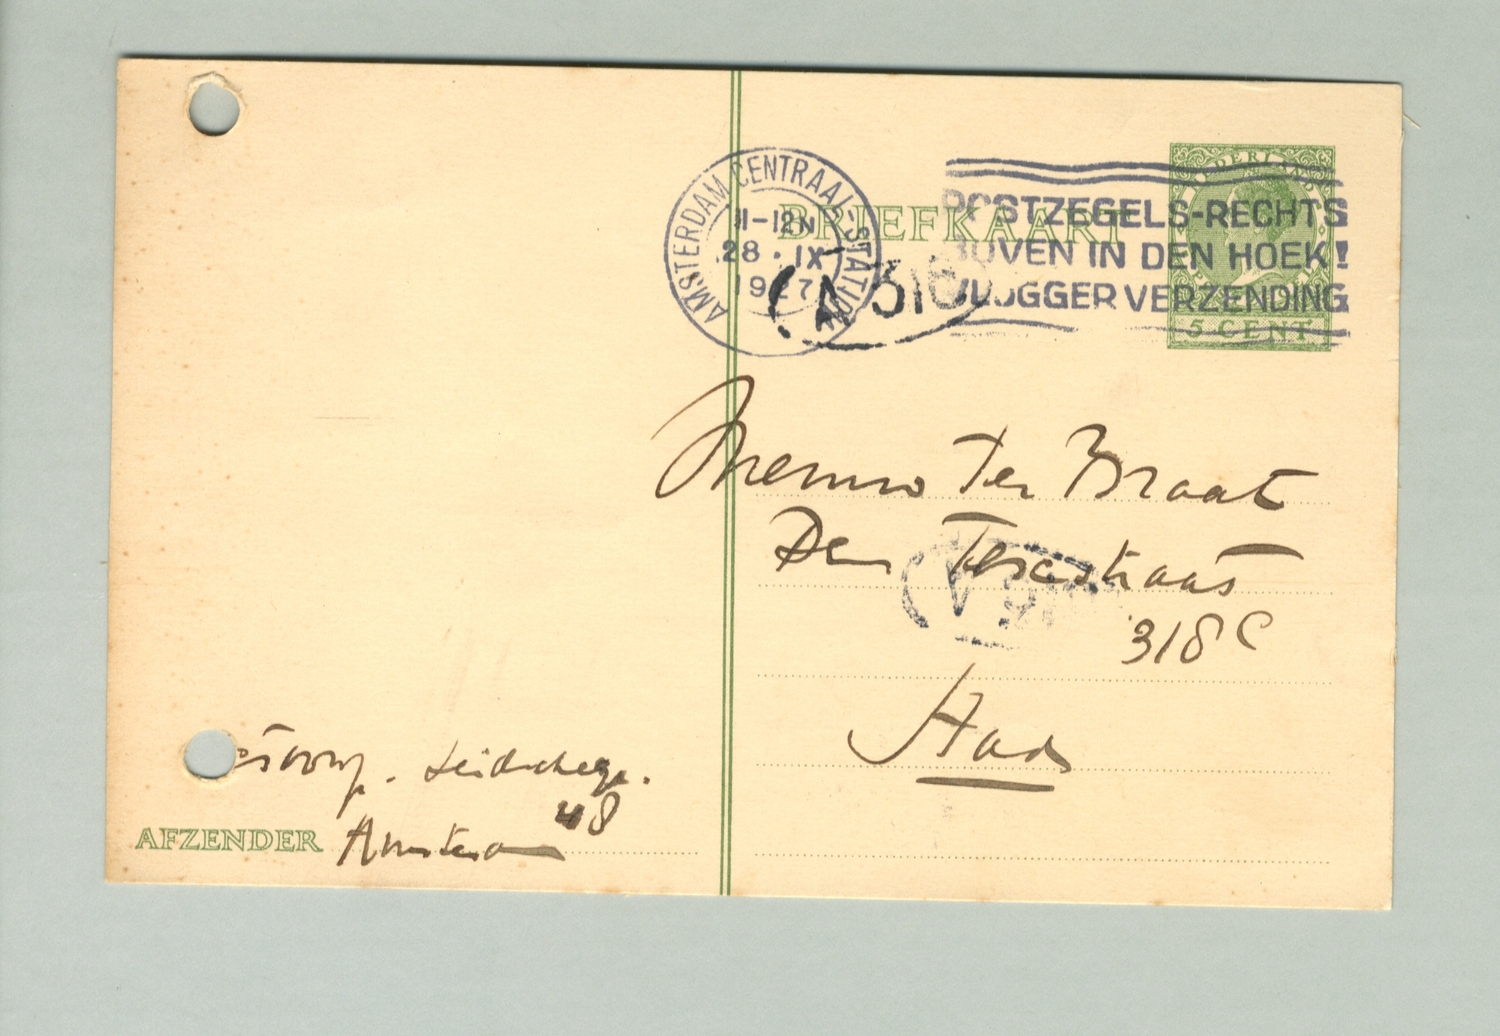 AMSTERDAM CENTRAAL-STATION
11-12N
28·IX
1927
BRIEFKAART
NEDERLAND
5 CENT
POSTZEGELS-RECHTS
BOVEN IN DEN HOEK!
VLUGGER VERZENDING
A 316
Menno ter Braak
Den
318 C
Stad
48
AFZENDER Amsterdam